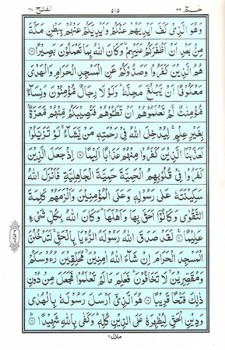 حٰمٓ ٢٦ ٥١٥ الفتح ٤٨
وَهُوَ الَّذِي كَفَّ أَيْدِيَهُمْ عَنْكُمْ وَأَيْدِيَكُمْ عَنْهُمْ بِبَطْنِ مَكَّةَ
مِنْ بَعْدِ أَنْ أَظْفَرَكُمْ عَلَيْهِمْ وَكَانَ اللَّهُ بِمَا تَعْمَلُونَ بَصِيرًا
هُمُ الَّذِينَ كَفَرُوا وَصَدُّوكُمْ عَنِ الْمَسْجِدِ الْحَرَامِ وَالْهَدْيَ
مَعْكُوفًا أَنْ يَبْلُغَ مَحِلَّهُ وَلَوْلَا رِجَالٌ مُؤْمِنُونَ وَنِسَاءٌ
مُؤْمِنَاتٌ لَمْ تَعْلَمُوهُمْ أَنْ تَطَئُوهُمْ فَتُصِيبَكُمْ مِنْهُمْ مَعَرَّةٌ
بِغَيْرِ عِلْمٍ لِيُدْخِلَ اللَّهُ فِي رَحْمَتِهِ مَنْ يَشَاءُ لَوْ تَزَيَّلُوا
لَعَذَّبْنَا الَّذِينَ كَفَرُوا مِنْهُمْ عَذَابًا أَلِيمًا إِذْ جَعَلَ الَّذِينَ
كَفَرُوا فِي قُلُوبِهِمُ الْحَمِيَّةَ حَمِيَّةَ الْجَاهِلِيَّةِ فَأَنْزَلَ اللَّهُ
سَكِينَتَهُ عَلَى رَسُولِهِ وَعَلَى الْمُؤْمِنِينَ وَأَلْزَمَهُمْ كَلِمَةَ
التَّقْوَى وَكَانُوا أَحَقَّ بِهَا وَأَهْلَهَا وَكَانَ اللَّهُ بِكُلِّ شَيْءٍ
عَلِيمًا لَقَدْ صَدَقَ اللَّهُ رَسُولَهُ الرُّؤْيَا بِالْحَقِّ لَتَدْخُلُنَّ
الْمَسْجِدَ الْحَرَامَ إِنْ شَاءَ اللَّهُ آمِنِينَ مُحَلِّقِينَ رُءُوسَكُمْ
وَمُقَصِّرِينَ لَا تَخَافُونَ فَعَلِمَ مَا لَمْ تَعْلَمُوا فَجَعَلَ مِنْ دُونِ
ذَلِكَ فَتْحًا قَرِيبًا هُوَ الَّذِي أَرْسَلَ رَسُولَهُ بِالْهُدَى
وَدِينِ الْحَقِّ لِيُظْهِرَهُ عَلَى الدِّينِ كُلِّهِ وَكَفَى بِاللَّهِ شَهِيدًا